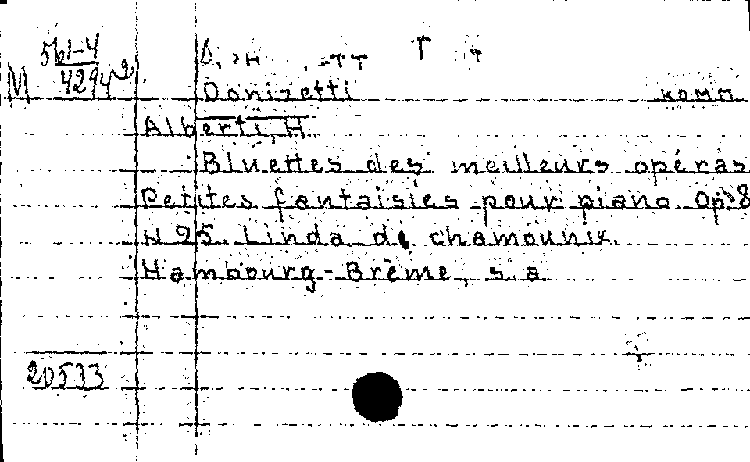 М 561-4
4294
Donizetti комп.
Alberti, H.
Bluettes des meilleurs opéras
Petites fantaisies pour piano. Op.
N 25. Linda di chamounix.
Hambourg-Brême, s. a.
20533